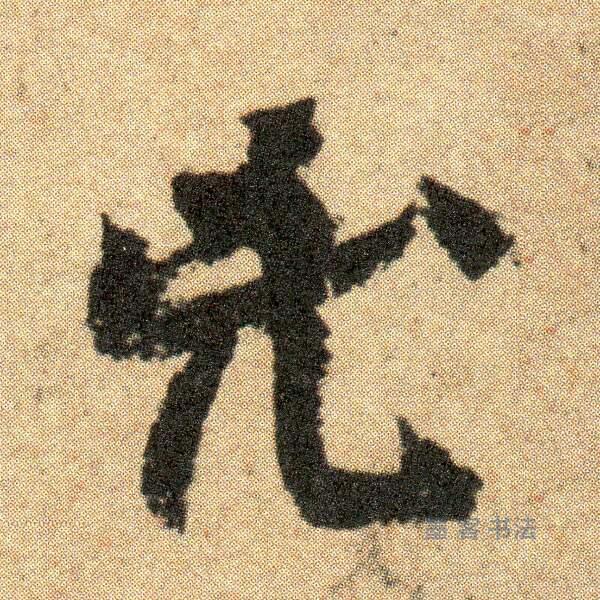 光
墨客书法